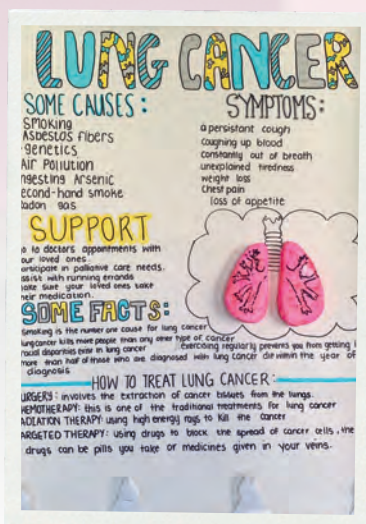 LUNG CANCER
SOME CAUSES:
smoking
Asbestos fibers
genetics
Air Pollution
ngesting Arsenic
econd-hand smoke
adon gas
SYMPTOMS:
a persistant cough
coughing up blood
constantly out of breath
unexplained tiredness
weight loss
chest pain
loss of appetite
SUPPORT
o to doctors appointments with
our loved ones.
articipate in palliative care needs.
ssist with running errands
ake sure your loved ones take
heir medication.
SOME FACTS:
smoking is the number one cause for lung cancer
lung cancer kills more people than any other type of cancer
racial disparities exist in lung cancer
exercising regularly prevents you from getting l
more than half of those who are diagnosed with lung cancer die within the year of
diagnosis
HOW TO TREAT LUNG CANCER:
URGERY: involves the extraction of cancer tissues from the lungs.
HEMOTHERAPY: this is one of the traditional treatments for lung cancer
ADIATION THERAPY: using high energy rays to kill the cancer
ARGETED THERAPY: using drugs to block the spread of cancer cells, the
drugs can be pills you take or medicines given in your veins.